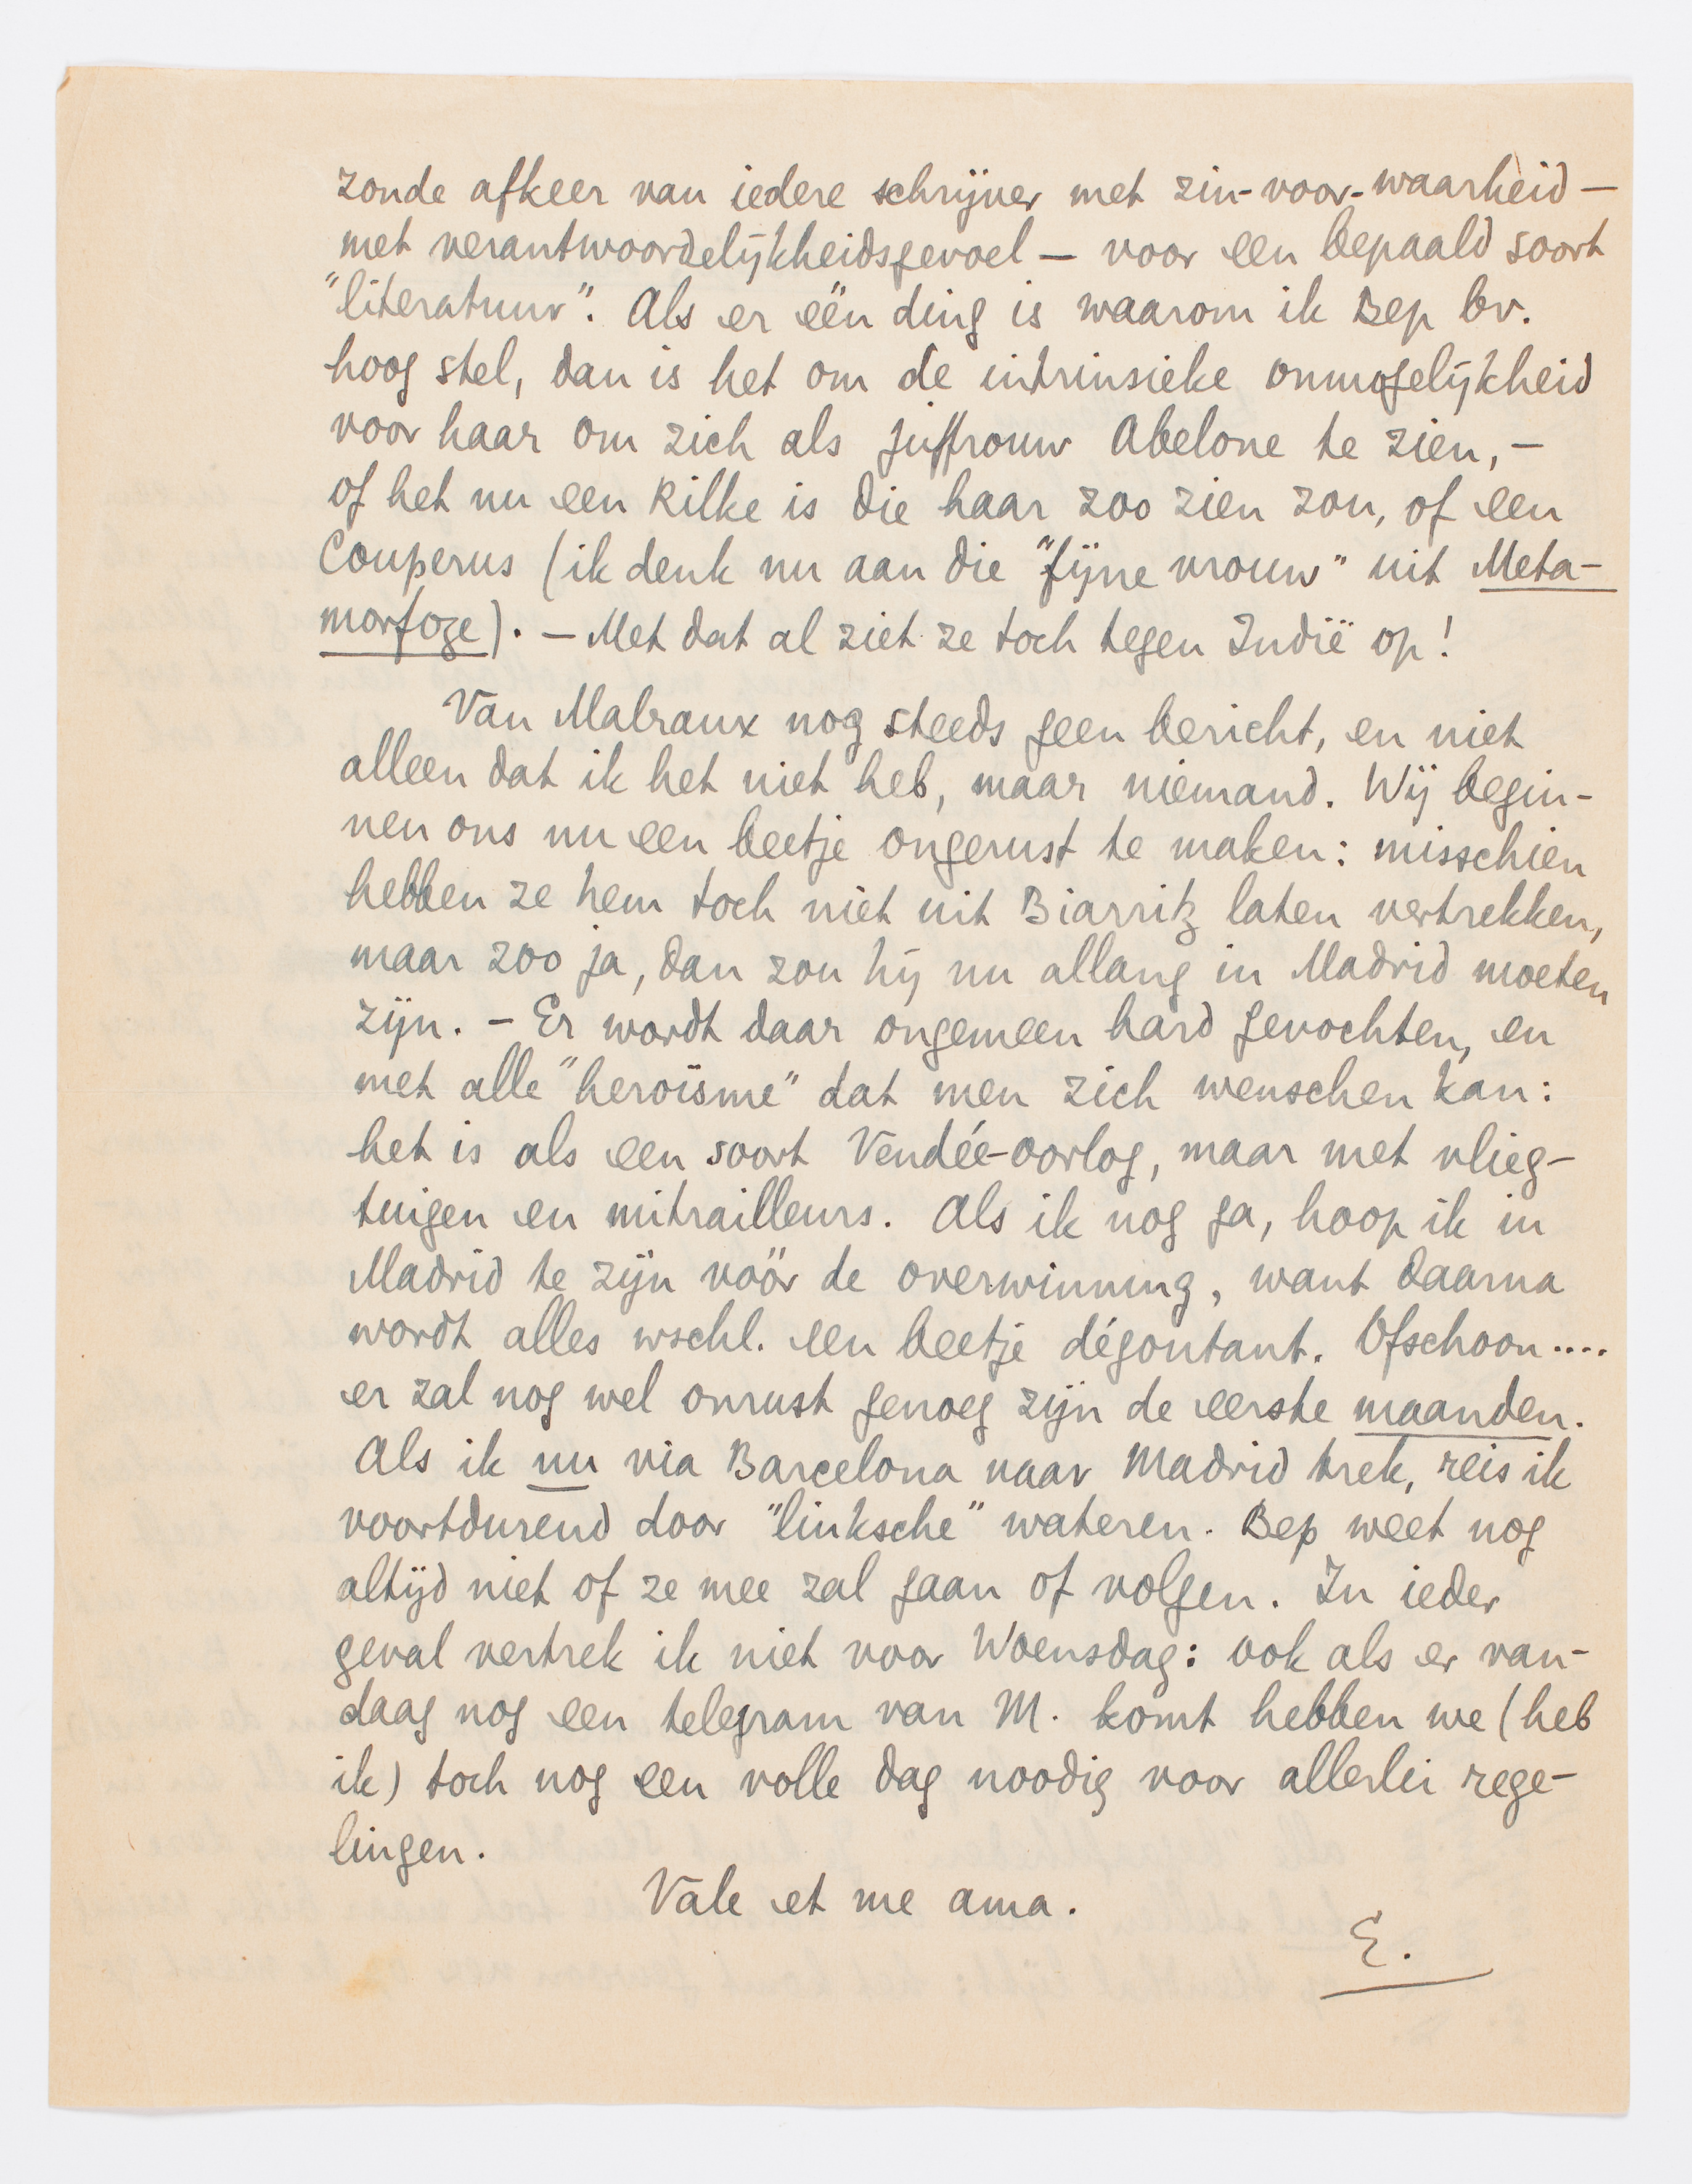 zonde afkeer van iedere schrijver met zin-voor-waarheid —
met verantwoordelijkheidsgevoel — voor een bepaald soort
"literatuur". Als er één ding is waarom ik Bep bv.
hoog stel, dan is het om de intrinsieke onmogelijkheid
voor haar om zich als juffrouw Abelone te zien, —
of het nu een Rilke is die haar zoo zien zou, of een
Couperus (ik denk nu aan die "fijne vrouw" uit Meta-
morfoze). — Met dat al ziet ze toch tegen Indië op!
Van Malraux nog steeds geen bericht, en niet
alleen dat ik het niet heb, maar niemand. Wij begin-
nen ons nu een beetje ongerust te maken: misschien
hebben ze hem toch niet uit Biarritz laten vertrekken,
maar zoo ja, dan zou hij nu allang in Madrid moeten
zijn. — Er wordt daar ongemeen hard gevochten, en
met alle "heroïsme" dat men zich wenschen kan:
het is als een soort Vendée-oorlog, maar met vlieg-
tuigen en mitrailleurs. Als ik nog ga, hoop ik in
Madrid te zijn vóór de overwinning, want daarna
wordt alles wschl. een beetje dégoutant. Ofschoon....
er zal nog wel onrust genoeg zijn de eerste maanden.
Als ik nu via Barcelona naar Madrid trek, reis ik
voortdurend door "linksche" wateren. Bep weet nog
altijd niet of ze mee zal gaan of volgen. In ieder
geval vertrek ik niet voor Woensdag: ook als er van-
daag nog een telegram van M. komt hebben we (heb
ik) toch nog een volle dag noodig voor allerlei rege-
lingen.
Vale et me ama.
E.